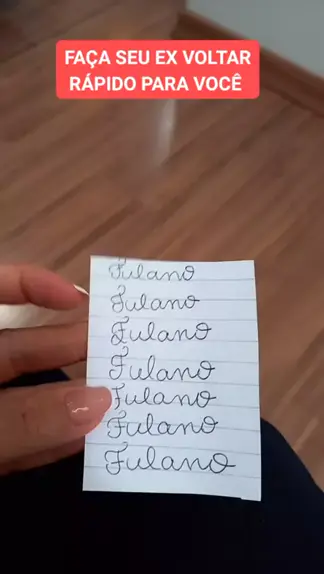 FAÇA SEU EX VOLTAR
RÁPIDO PARA VOCÊ
Fulano
Fulano
Fulano
Fulano
Fulano
Fulano
Fulano